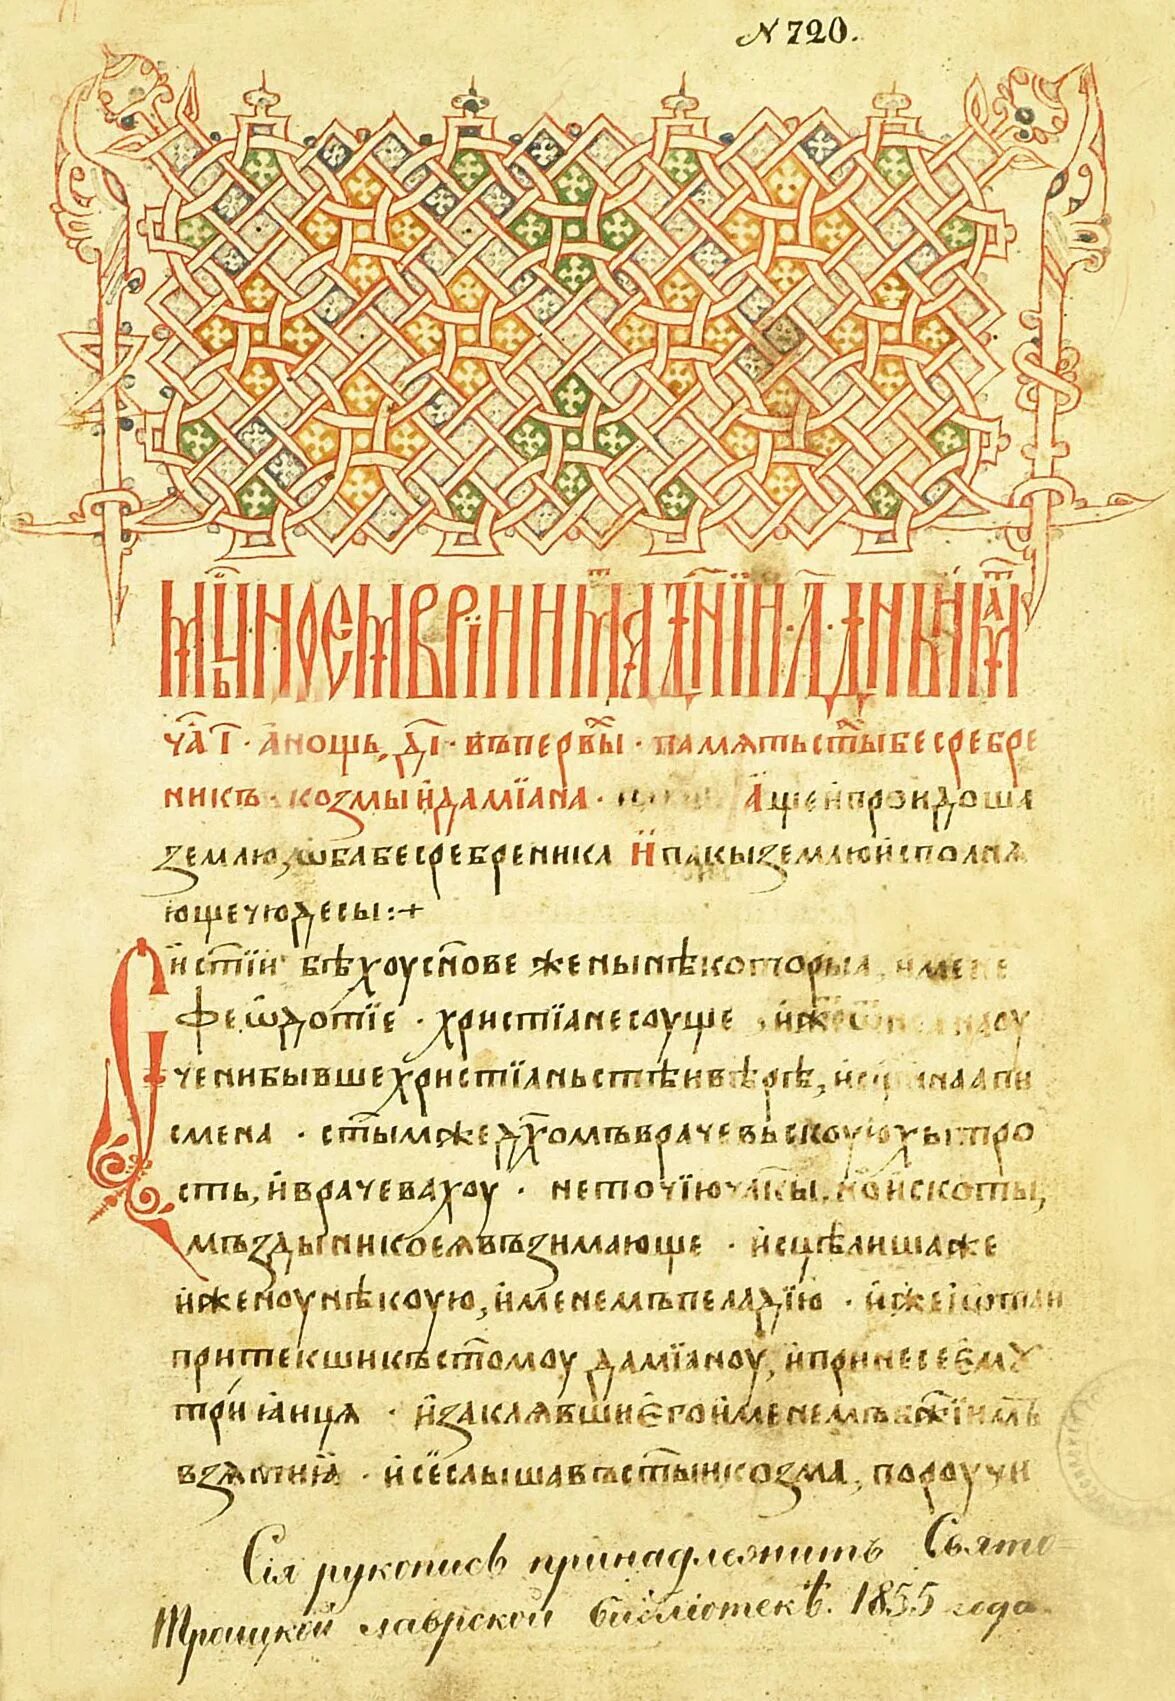 N 720.
мц҃ъ ноемврїи имѣⷮя дн҃їи · л҃ · дн҃ь имаⷮ
ча҃ т҃ · а҆ нощь, д҃і · въ первⷯы · память ст҃ы бесребре
никъ · козмы и҆дамїана · А҆ще и҆проидоша
землю, ѡ҆ба бесребреника И҆ пакы землю и҆сполня
юще чюдесы :+
Си ст҃їи бѣхоу сн҃ове жены нѣкоторыа, имене
феѡ҆дотїе · христїане соуще , и҆же
чени бывше христїаньстѣи вѣрѣ,
смена · ст҃ымже дх҃омъ врачевьскоую хытро
сть, и҆врачевахоу · неточїю чл҃кы, но҆ и҆скоты,
мъзды никоея възимающе · и҆сцѣлишаже
и҆женоу нѣкоую, и҆менемъ пеладїю · и҆же
притекши къ ст҃омоу дамїаноу, и҆принесе є҆мꙋ
три ꙗица · и҆заклявши є҆го и҆менемъ бж҃їимъ
взѧти ꙗ҆ · и҆ се слышавъ ст҃ыи козма, пороучи
Сія рукопись принадлежитъ Свято-
Троицкой лаврской библіотекѣ. 1855 года.